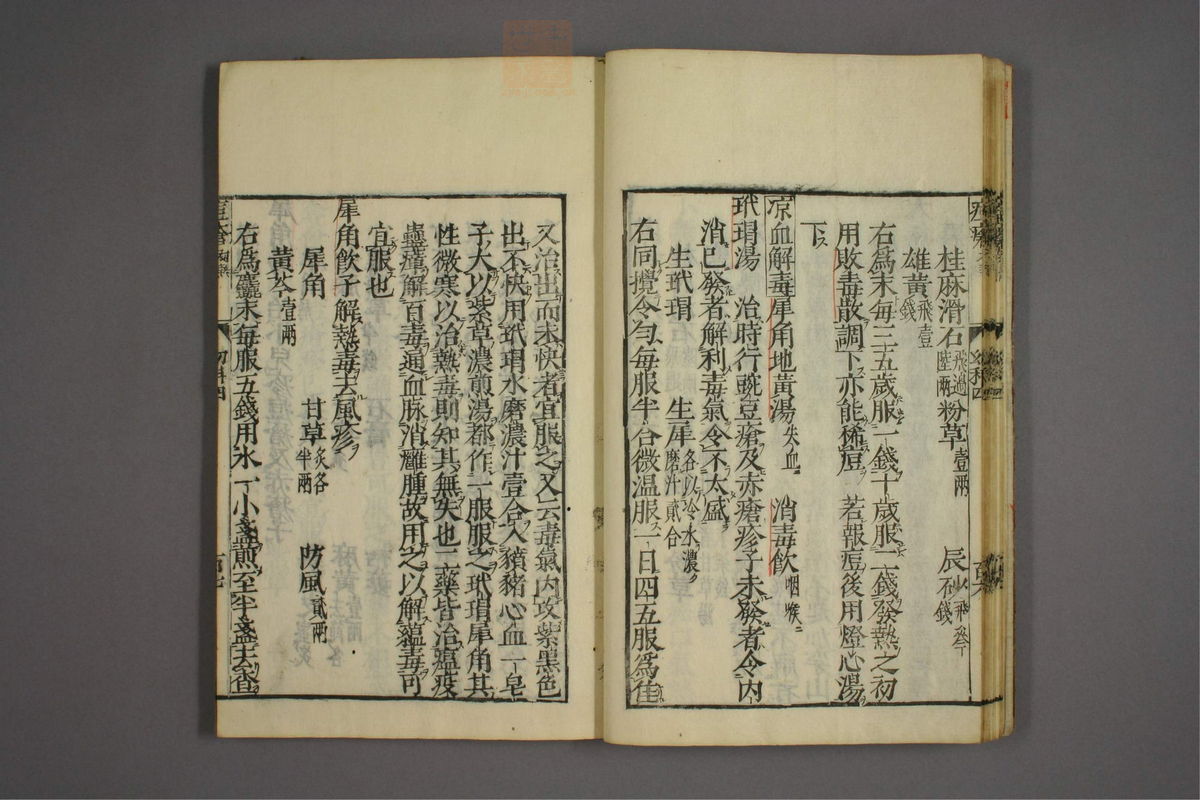 桂麻滑石飛過陸兩粉草壹兩 辰砂飛叁錢
雄黃飛壹錢
右爲末每三五歲服一錢十歲服二錢發熱之初
用敗毒散調下亦能稀痘 若報痘後用燈心湯
下ス
凉血解毒犀角地黃湯失血 消毒飲咽喉ニ
玳瑁湯 治時行豌豆瘡及赤瘡疹子未發者令内
消已發者解利毒氣令不太盛
生玳瑁 生犀各以冷水濃ク磨汁貳合
右同攪令勻每服半合微温服一日四五服爲佳
又治出而未快者宜服之又云毒氣内攻紫黑色
出不快用玳瑁水磨濃汁壹合入豶豬心血一皂
子大以紫草濃煎湯都作一服服之玳瑁犀角其
性微寒以治熱毒則知其無失也二藥皆治瘟疫
蠱瘴解百毒通血脉消癰腫故用之以解蘊毒可
宜服也
犀角飲子解熱毒去風疹
犀角 甘草炙各半兩 防風貳兩
黃芩壹兩
右爲麤末每服五錢用水一小盞煎至半盞去滓